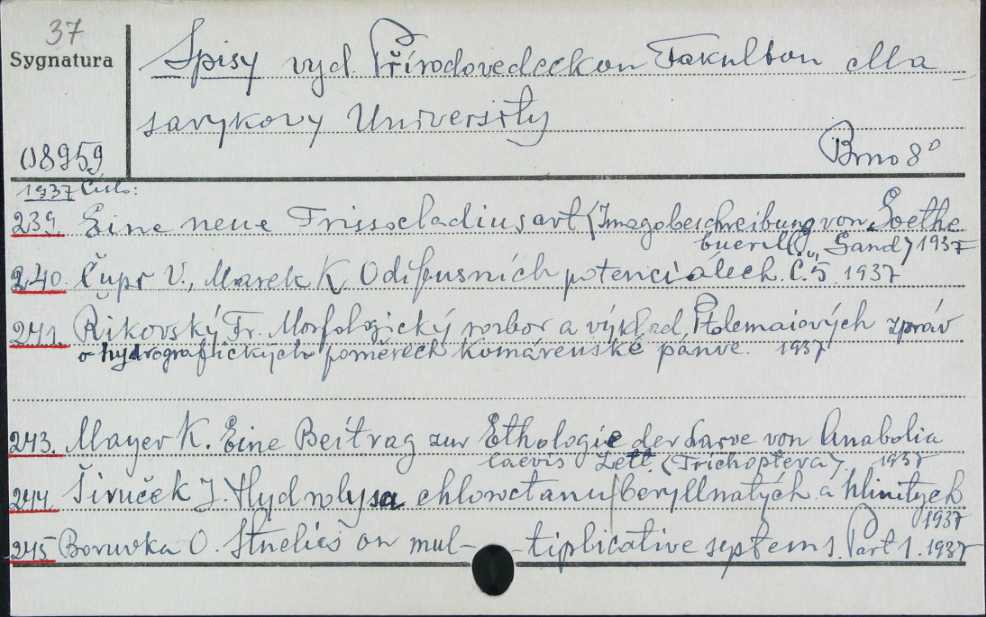 37
Sygnatura
Spisy vyd. Přírodovedeckou Fakultou Ma-
sarykovy University
08959
Brno 8°
1937 Čislo:
239. Eine neue Trissocladiusart (Imagobeschreibung von Goethe
buerill, Sand) 1937
240. Čupr V., Marek K. O difusních potenciálech. Č. 5. 1937
241. Řikovský Fr. Morfologický rozbor a výklad Ptolemaiových zpráv
o hydrografických poměrech Komárenské pánve. 1937
243. Mayer K. Eine Beitrag zur Ethologie der Larve von Anabolia
laevis Zett. (Trichoptera). 1937
244. Širuček J. Hydrolysa chlorečtanu beryllnatých a hlinitych
1937
245 Boruvka O. Studies on mul- -tiplicative systems. Part 1. 1937